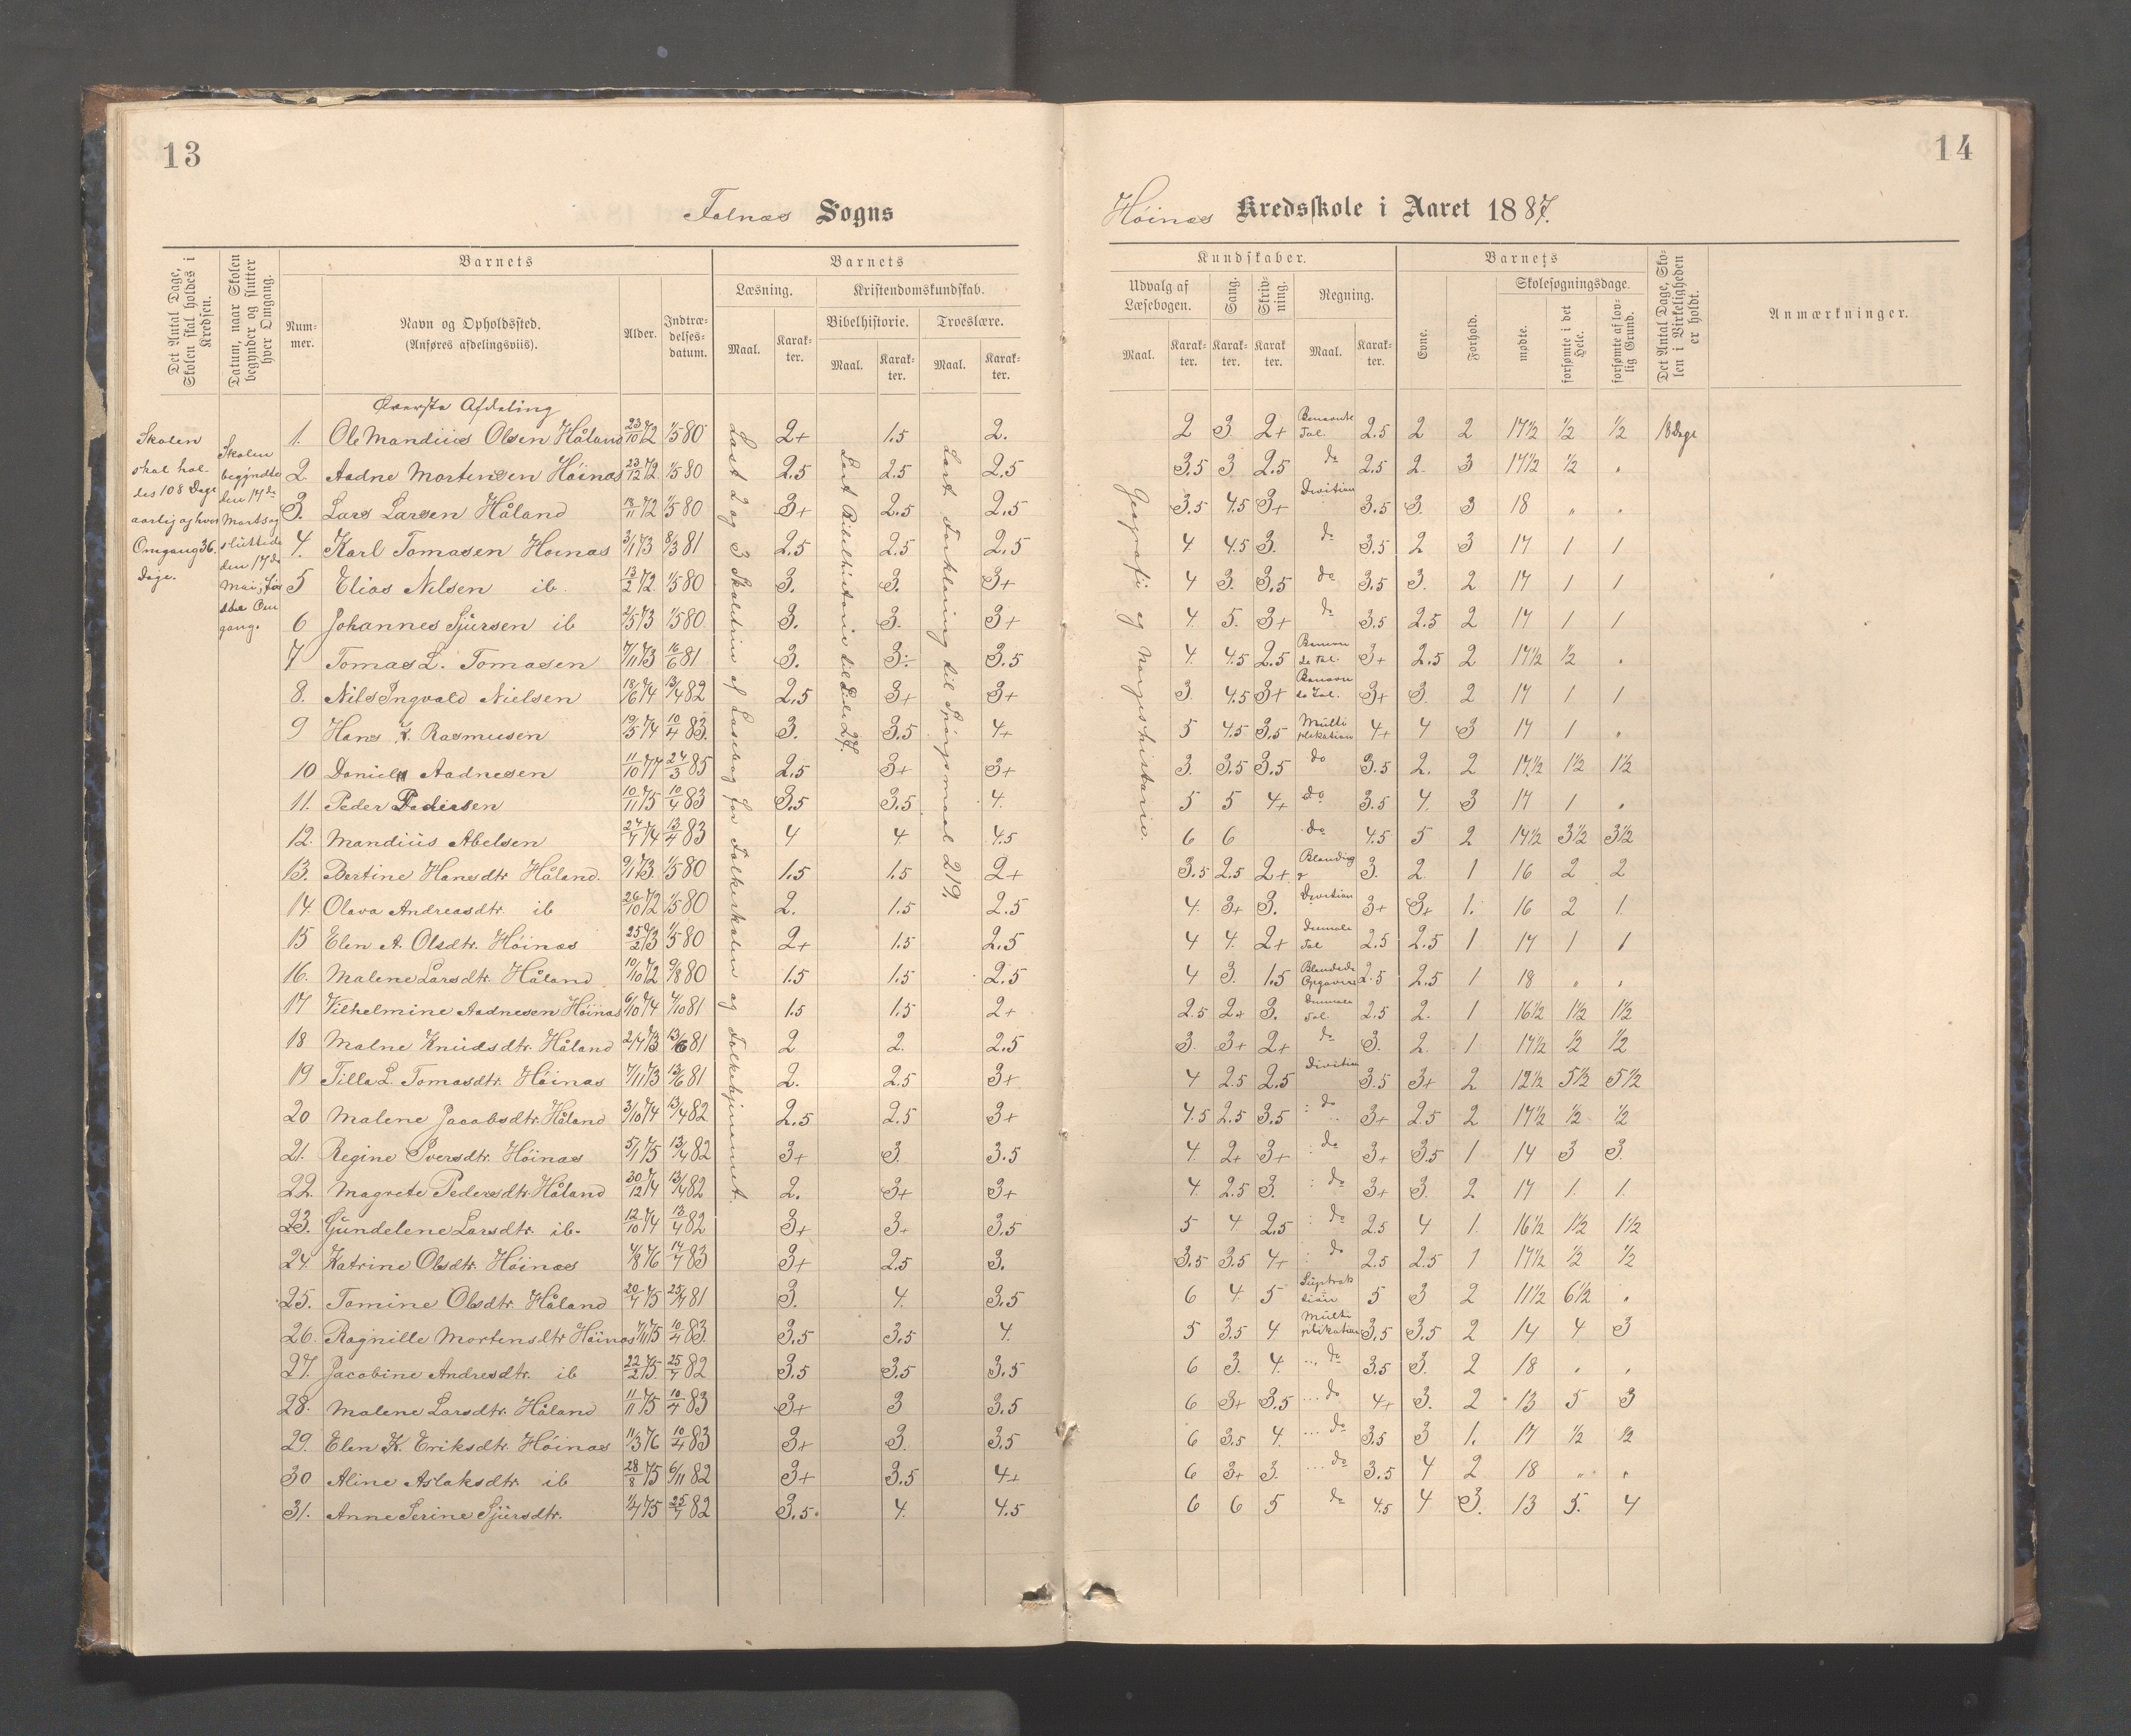 13
14
Falnæs Sogns
Høinæs Kredsskole i Aaret 1887.
Det Antal Dage, Skolen skal holdes i Kredsen.
Datum, naar Skolen begynder og slutter hver Omgang.
Barnets
Num-
mer.
Navn og Opholdssted.
(Anføres afdelingsviis).
Alder.
Indtræ-
delses-
datum.
Barnets
Læsning.
Kristendomskundskab.
Maal.
Karak-
ter.
Bibelhistorie.
Troeslære.
Maal.
Karak-
ter.
Maal.
Karak-
ter.
Kundskaber.
Udvalg af
Læsebogen.
Sang.
Skriv-
ning.
Regning.
Maal.
Karak-
ter.
Karak-
ter.
Karak
ter.
Maal.
Karak-
ter.
Barnets
Evne.
Forhold.
Skolesøgningsdage.
mødte.
forsømte i det Hele.
forsømte af lov-
lig Grund.
Det Antal Dage, Sko-
len i Virkeligheden
er holdt.
Anmærkninger.
Øverste Afdeling
Skolen
skal hol-
des 108 Dage
aarlig og hver
Omgang 36.
Dage.
Skolen
begyndte
den 17de
Marts og
sluttede
den 17de
Mai, før
ste Om
gang.
Læst 2 og 3 Skoletrin af Læsebog for Folkeskolen og Folkehjemmet.
Læst Bibelhistorie til Side 27.
Læst Forklaring til Spørgsmaal 219.
Geografi og Norgeshistorie.
1. Ole Mandius Olsen Håland 23/10 72 1/5 80 2+ 1.5 2. 2 3 2+ Benævnte Tal. 2.5 2 2 17½ ½ ½ 18 Dage
2. Aadne Mortensen Höinæs 23/12 72 1/5 80 2.5 2.5 2.5 3.5 3 2.5 do 2.5 2. 3 17½ ½ "
3. Lars Larsen Håland 13/11 72 1/5 80 3+ 2.5 2.5 3.5 4.5 3+ Divition 3.5 3. 3 18 " "
4. Karl Tomasen Höinæs 3/1 73 8/3 81 2.5 2.5 2.5 4. 4.5 3. do 3.5 2 3 17 1 1
5 Elias Nilsen ib. 13/2 72 1/5 80 3. 3. 3+ 4 3. 3.5 do 3.5 3. 2 17 1 1
6 Johannes Sjursen ib 2/5 73 1/5 80 3. 3. 3+ 4. 5. 3+ do 3.5 2.5 2 17 1 1
7 Tomas L. Tomasen 7/11 73 16/6 81 3. 3÷ 3.5 4. 4.5 2.5 Benævn de Tal. 3+ 2.5 2 17½ ½ "
8. Nils Ingvald Nielsen 18/6 74 13/4 82 2.5 3+ 3+ 3. 4.5 3+ Benævn de Tal. 3+ 3. 2 17 1 1
9 Hans K. Rasmusen 19/5 74 10/4 83. 3. 3.5 4+ 5 4.5 3.5 Multi plikation 4+ 4 3 17 1 "
10 Daniel Aadnesen 11/10 77 24/3 85 2.5 3+ 3+ 3. 3.5 3.5 do 3.5 2. 2 17½ 1½ 1½
11. Peder Pedersen 10/11 75 10/4 83 3.5 3.5 4. 5 5 4+ do 3.5 4. 3 17 1 "
12. Mandius Abelsen 24/7 74 13/4 83 4 4. 4.5 6 6 do 4.5 5 2 14½ 3½ 3½
13. Bertine Hansdtr Håland. 9/1 73. 1/5 80 1.5 1.5 2+ 3.5 2.5 2+ 3. 2 1 16 2 2
14. Olava Andreasdtr. ib 26/10 72 1/5 80 2. 1.5 2.5 4. 3+ 3. Divition 3+ 3+ 1. 16 2 1.
15 Elen A. Olsdtr. Höinæs 25/2 73 1/5 80 2+ 1.5 2.5 4 4. 2+ Tal 2.5 2.5 1 17 1 1
16. Malene Larsdtr. Håland 10/10 72 9/8 80 1.5 1.5 2.5 4 3. 1.5 Blandede Opgaver 2.5 2.5 1 18 " "
17 Vilhelmine Aadnesen Höinæs 6/10 74 4/10 81 1.5 1.5 2+ 2.5 2+ 3. Tal 2.5 2. 1 16½ 1½ 1½
18 Malne Knudsdtr. Håland 2/7 73 13/6 81 2 2. 2.5 3. 3+ 2+ do 3. 2. 1 17½ ½ ½
19 Tilla L. Tomasdtr. Höinæs 7/11 73 13/6 81 2. 2.5 3+ 4 2.5 2.5 Divition 3.5 3+ 2 12½ 5½ 5½
20 Malene Jacobsdtr. Håland 3/10 74 13/4 82 2.5 2.5 3+ 4.5 2.5 3.5 do 3+ 2.5 2 17½ ½ ½
21. Regine Iversdtr. Höinæs 5/1 75 13/4 82 3+ 3. 3.5 4. 2+ 3+ do 3+ 3.5 1 14 3 3.
22. Magrete Pedersdtr Håland 30/12 74 13/4 82 2. 3+ 3+ 4. 2.5 3. do 3+ 3. 2 17 1. 1.
23. Gundelene Larsdtr. ib. 12/10 74 13/4 82 3+ 3+ 3.5 5 4 2.5 do 2.5 4 1. 16½ 1½ 1½
24. Katrine Olsdtr. Höinæs 4/8 76 17/4 83 3+ 2.5 3. 3.5 3.5 4+ do 2.5 2.5 1 17½ ½ ½
25. Tomine Olsdtr. Håland 20/7 75 25/7 81 3. 4. 3.5 6 4. 5 Suptrak tion 5 3 2 11½ 6½ "
26. Ragnille Mortensdtr Höinæs 7/11 75 10/4 83. 3.5 3.5 4. 5 3.5 4 Multi plikation 3.5 3.5 2 14 4 3
27. Jacobine Andresdtr. ib 22/2 75. 25/7 82 3.5 3.5 3.5 6 3. 4. do 3.5 3. 2 18 " "
28. Malene Larsdtr. Håland 11/11 75 10/4 83 3+ 3 3.5 6 3+ 3.5 do 4+ 3. 2 13 5 3
29. Elen K. Eriksdtr. Höinæs 11/3 76 10/4 83 3+ 3. 3.5 6 3.5 4. do 3.5 3 1. 17 ½ ½
30 Aline Aslaksdtr. ib 28/8 75 6/11 82 3+ 3.5 4+ 6 3+ 3. do 3.5 4 2 18 " "
31. Anne Serine Sjursdtr. 1/4 75 25/7 82 3.5. 4. 4.5 6 6 5 do 4.5 4 3. 13 5. 4